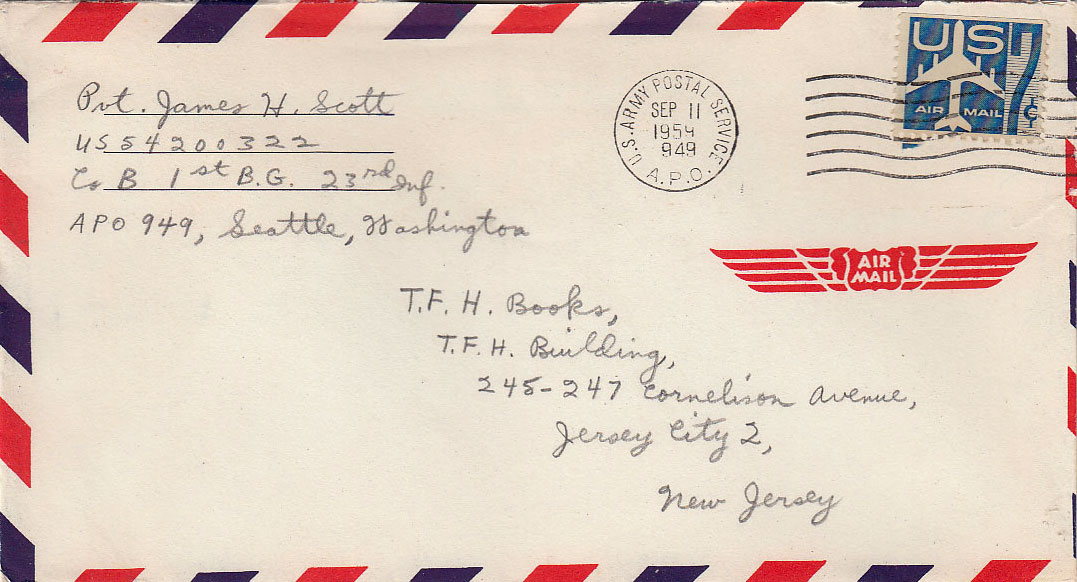 Pvt. James H. Scott
US 54200322
Co B 1st B.G. 23rd Inf.
APO 949, Seattle, Washington
U.S. ARMY POSTAL SERVICE
SEP 11
1959
949
A.P.O.
US 7¢
AIR MAIL
AIR
MAIL
T.F.H. Books,
T.F.H. Building,
245-247 Cornelison Avenue,
Jersey City 2,
New Jersey